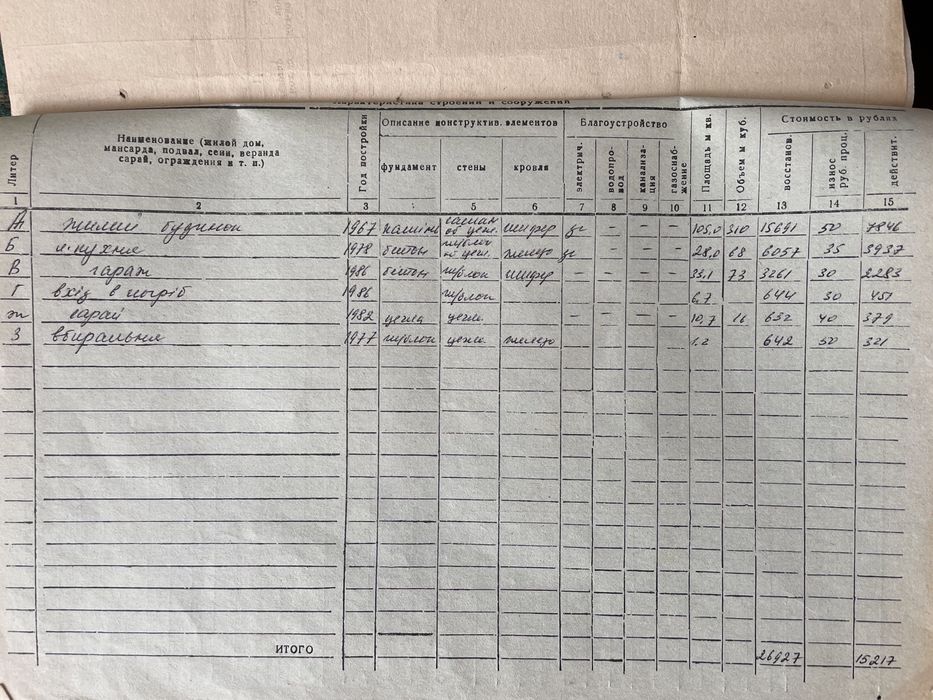 Характеристика строений и сооружений
Литер
Наименование (жилой дом, мансарда, подвал, сени, веранда сарай, ограждения и т. п.)
Год востройки
Описание конструктив. элементов
фундамент стены кровля
Благоустройство
электрич. водопровод канализация газоснабжение
Площадь м кв.
Объем м куб.
Стоимость в рублях
восстанов. износ руб. проц. действит.
1 2 3 5 6 7 8 9 10 11 12 13 14 15
А жилий будинок 1967 саман шифер 105,0 310 15691 50 7846
Б л.кухня 1978 бетон железо 28,0 68 6057 35 3937
В гараж 1986 бетон ш/блок шифер — — — 35,1 73 3261 30 2283
Г вхід в погріб 1986 ш/блок 6,7 644 30 451
ж сарай 1982 цегла цегл. — — — — 10,7 16 632 40 379
З вбиральня 1977 ш/блок цегл. железо 1,2 642 50 321
ИТОГО 26927 15217